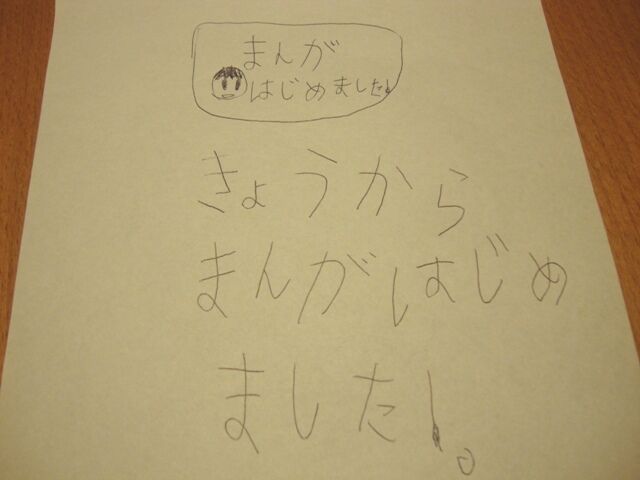 まんが
はじめました!
きょうから
まんがはじめ
ました!。